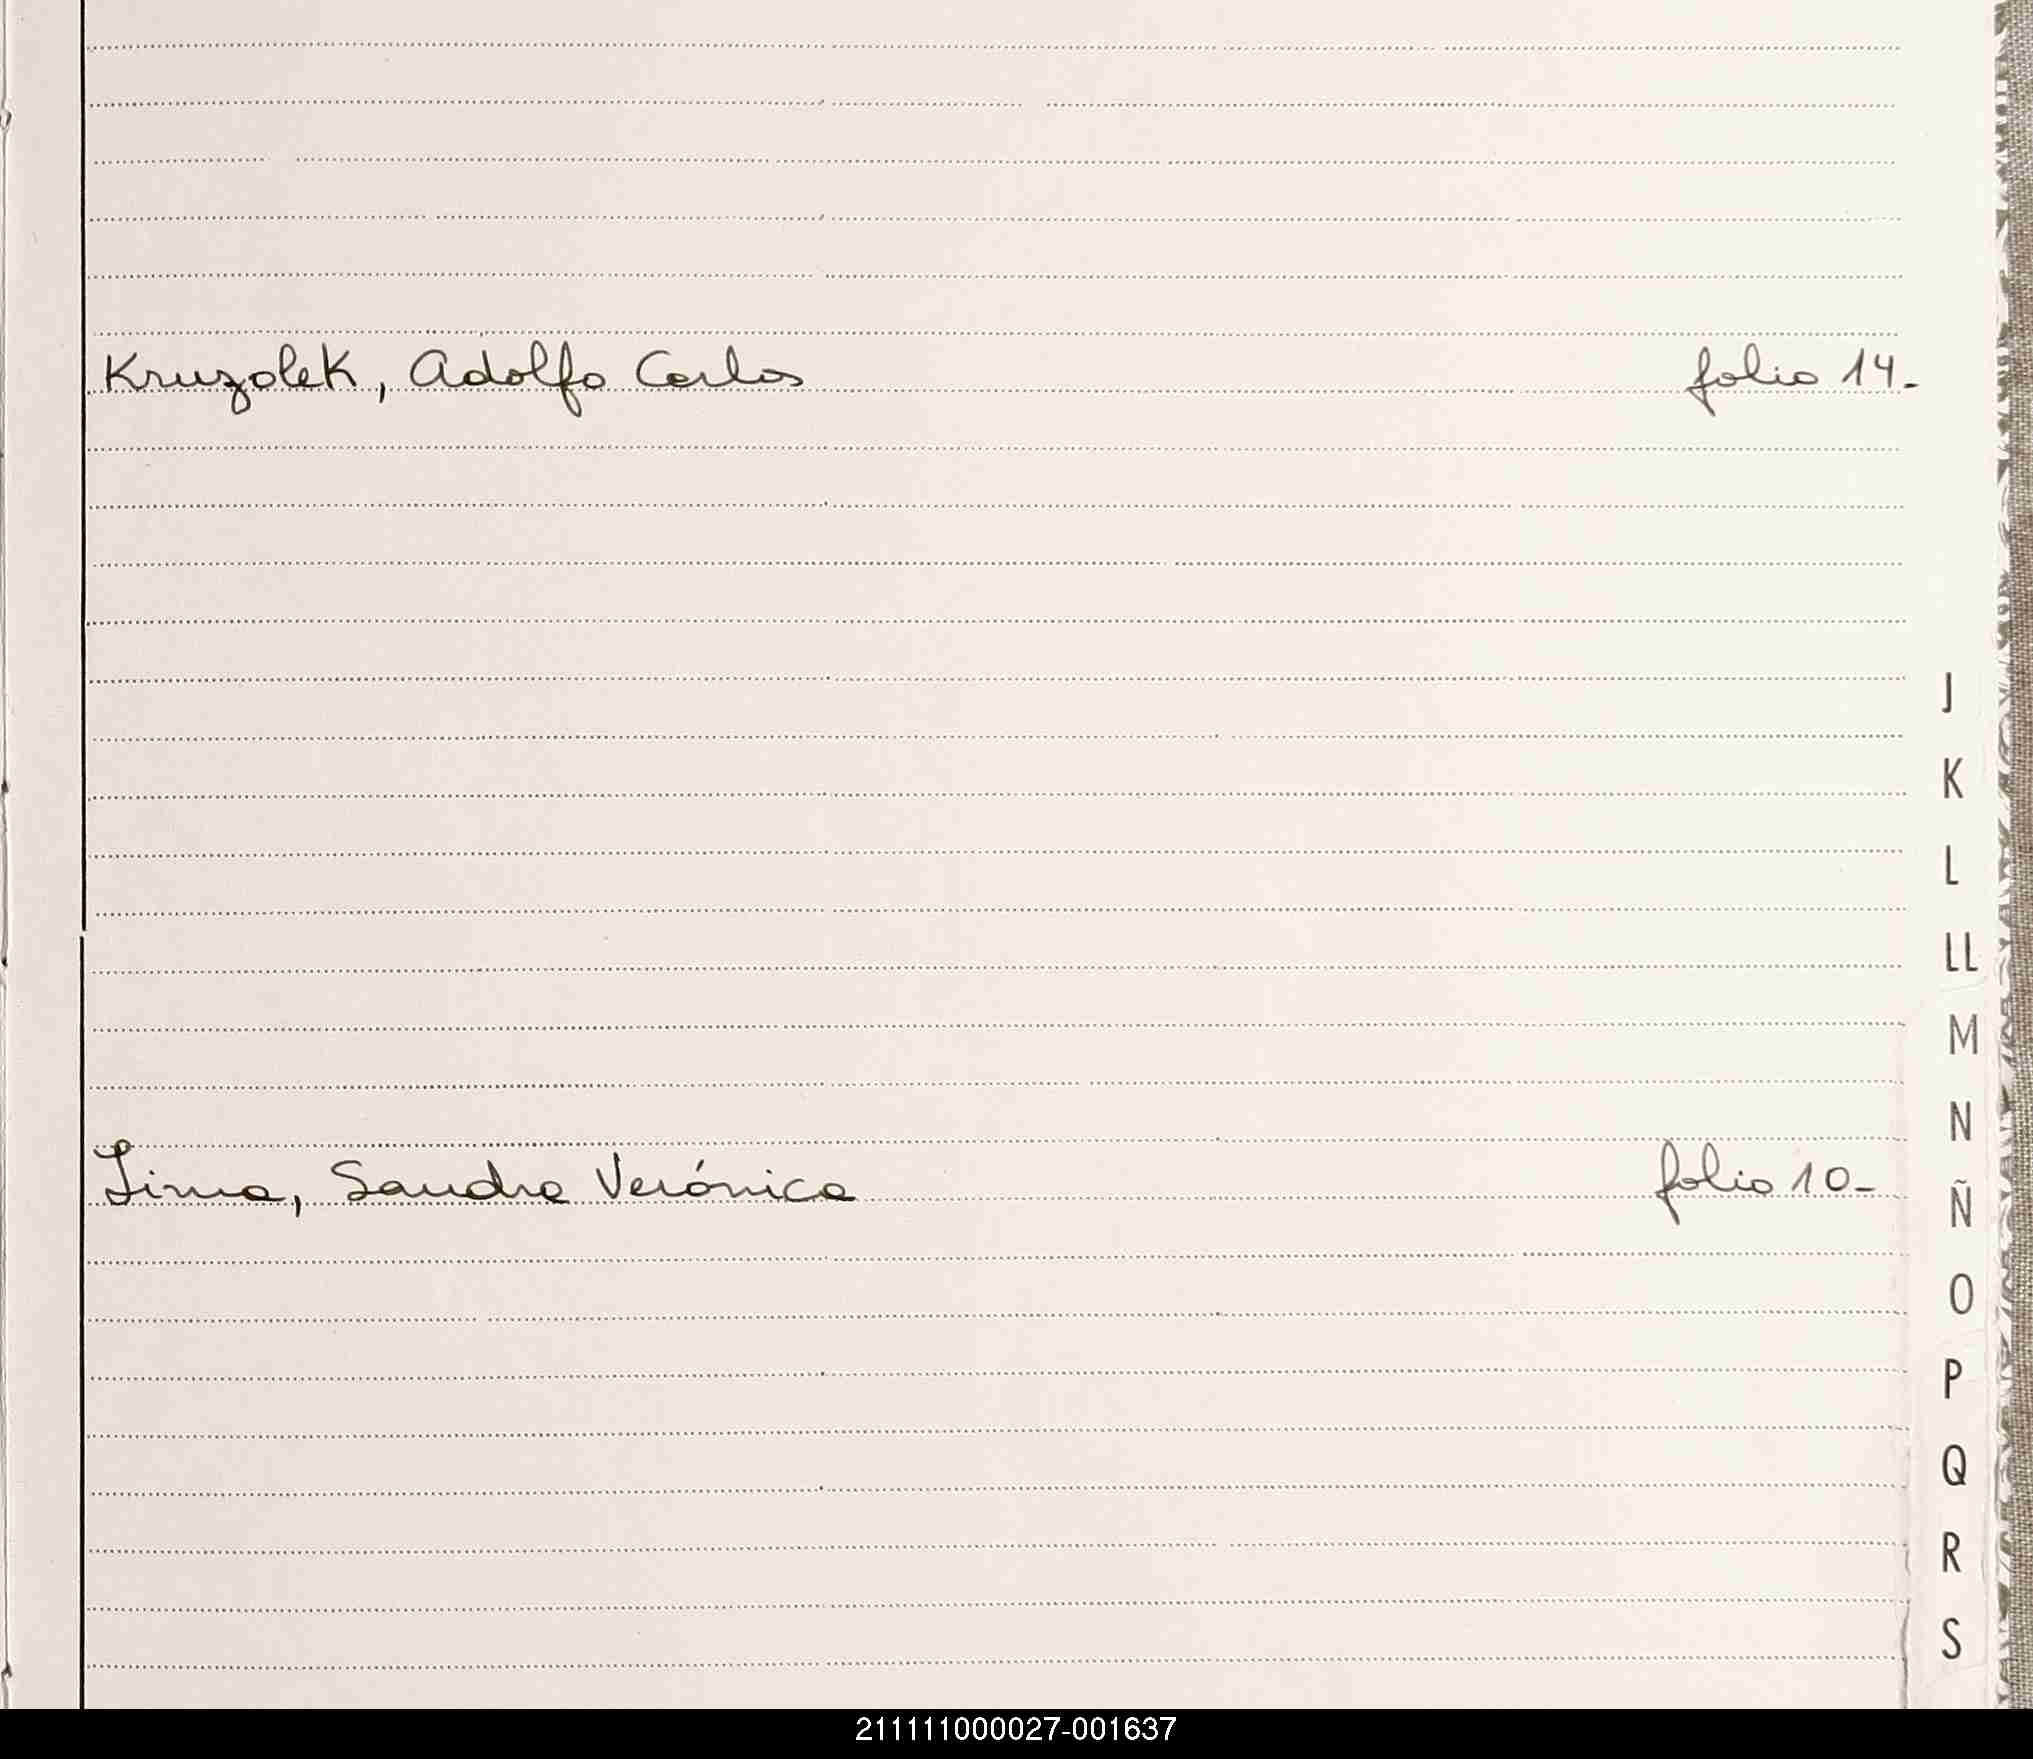 Kruzolek, Adolfo Carlos folio 14-
J
K
L
LL
M
N
Lima, Sandra Verónica folio 10-
Ñ
O
P
Q
R
S
211111000027-001637